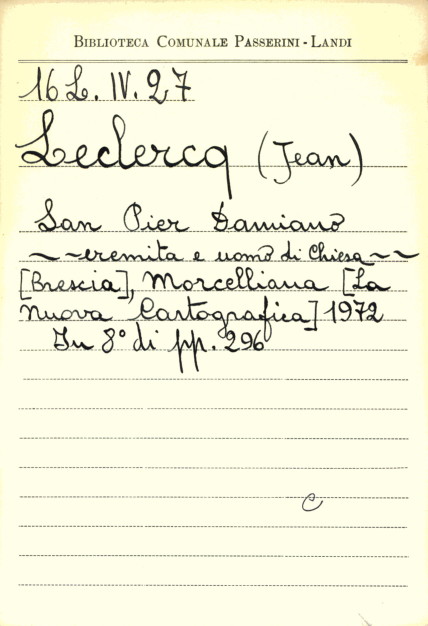 BIBLIOTECA COMUNALE PASSERINI-LANDI
16 L. IV. 27
Leclercq (Jean)
San Pier Damiano
~ ~ eremita e uomo di Chiesa ~ ~
[Brescia], Morcelliana [La
Nuova Cartografica] 1972
In 8° di pp. 296
C